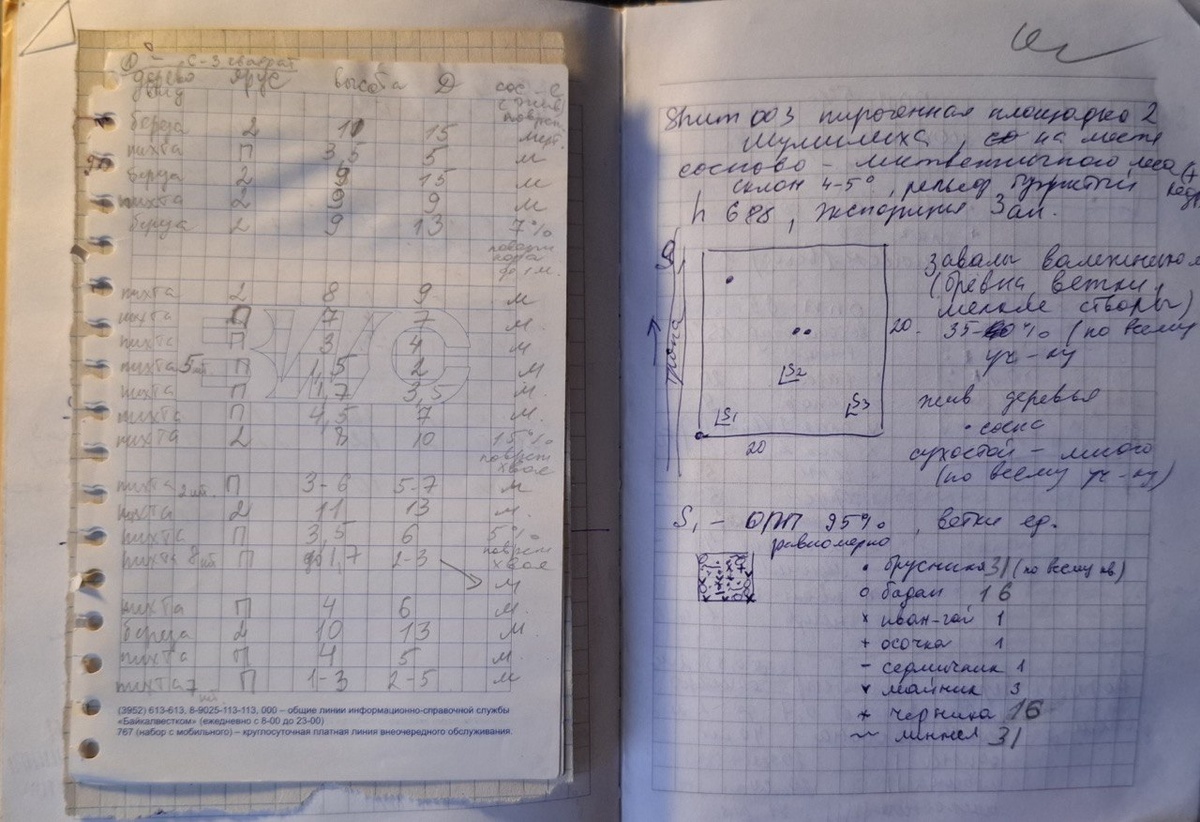 С-З квадрат
дерево ярус высота Д сос-е
вид
поврежд
береза 2 11 15 мерт.
пихта П 3,5 5 м
береза 2 9 15 м
пихта 2 9 9 м
береза 2 9 13 7%
кора
до 1 м.
пихта 2 8 9 м
пихта П 7 7 м.
пихта П 3 4 м
пихта 5 шт. П 1,5 2 м
пихта П 1,7 3,5 м.
пихта П 4,5 7 м.
пихта 2 8 10 15%
хвоя
пихта 2 шт. П 3-6 5-7 м
пихта 2 11 13 м.
пихта П 3,5 6 5%
пихта 8 шт П 1,7 2-3 хвоя
м
пихта П 4 6 м.
береза 2 10 13 м
пихта П 4 5 м.
пихта 7 шт П 1-3 2-5 м
ЗИС
(3952) 613-613, 8-9025-113-113, 000 – общие линии информационно-справочной службы
«Байкалвестком» (ежедневно с 8-00 до 23-00)
767 (набор с мобильного) – круглосуточная платная линия внеочередного обслуживания.
Shum 003 пирогенная площадка 2
Шумилиха, на месте
сосново-лиственничного леса (+
склон 4-5°, рельеф бугристый кедр
h 688, экспозиция Зап.
тропа
20
20
S1
S2
S3
Завалы валежника
(бревна ветки,
мелкие стволы)
35-40% (по всему
уч-ку
жив деревья
• сосна
сухостой - много
(по всему уч-ку)
S1 - ОПП 95%, ветки ед.
равномерно
• брусника 31 (по всему кв)
o бадан 16
x иван-чай 1
+ осочка 1
- седмичник 1
v майник 3
+ черника 16
~ линнея 31